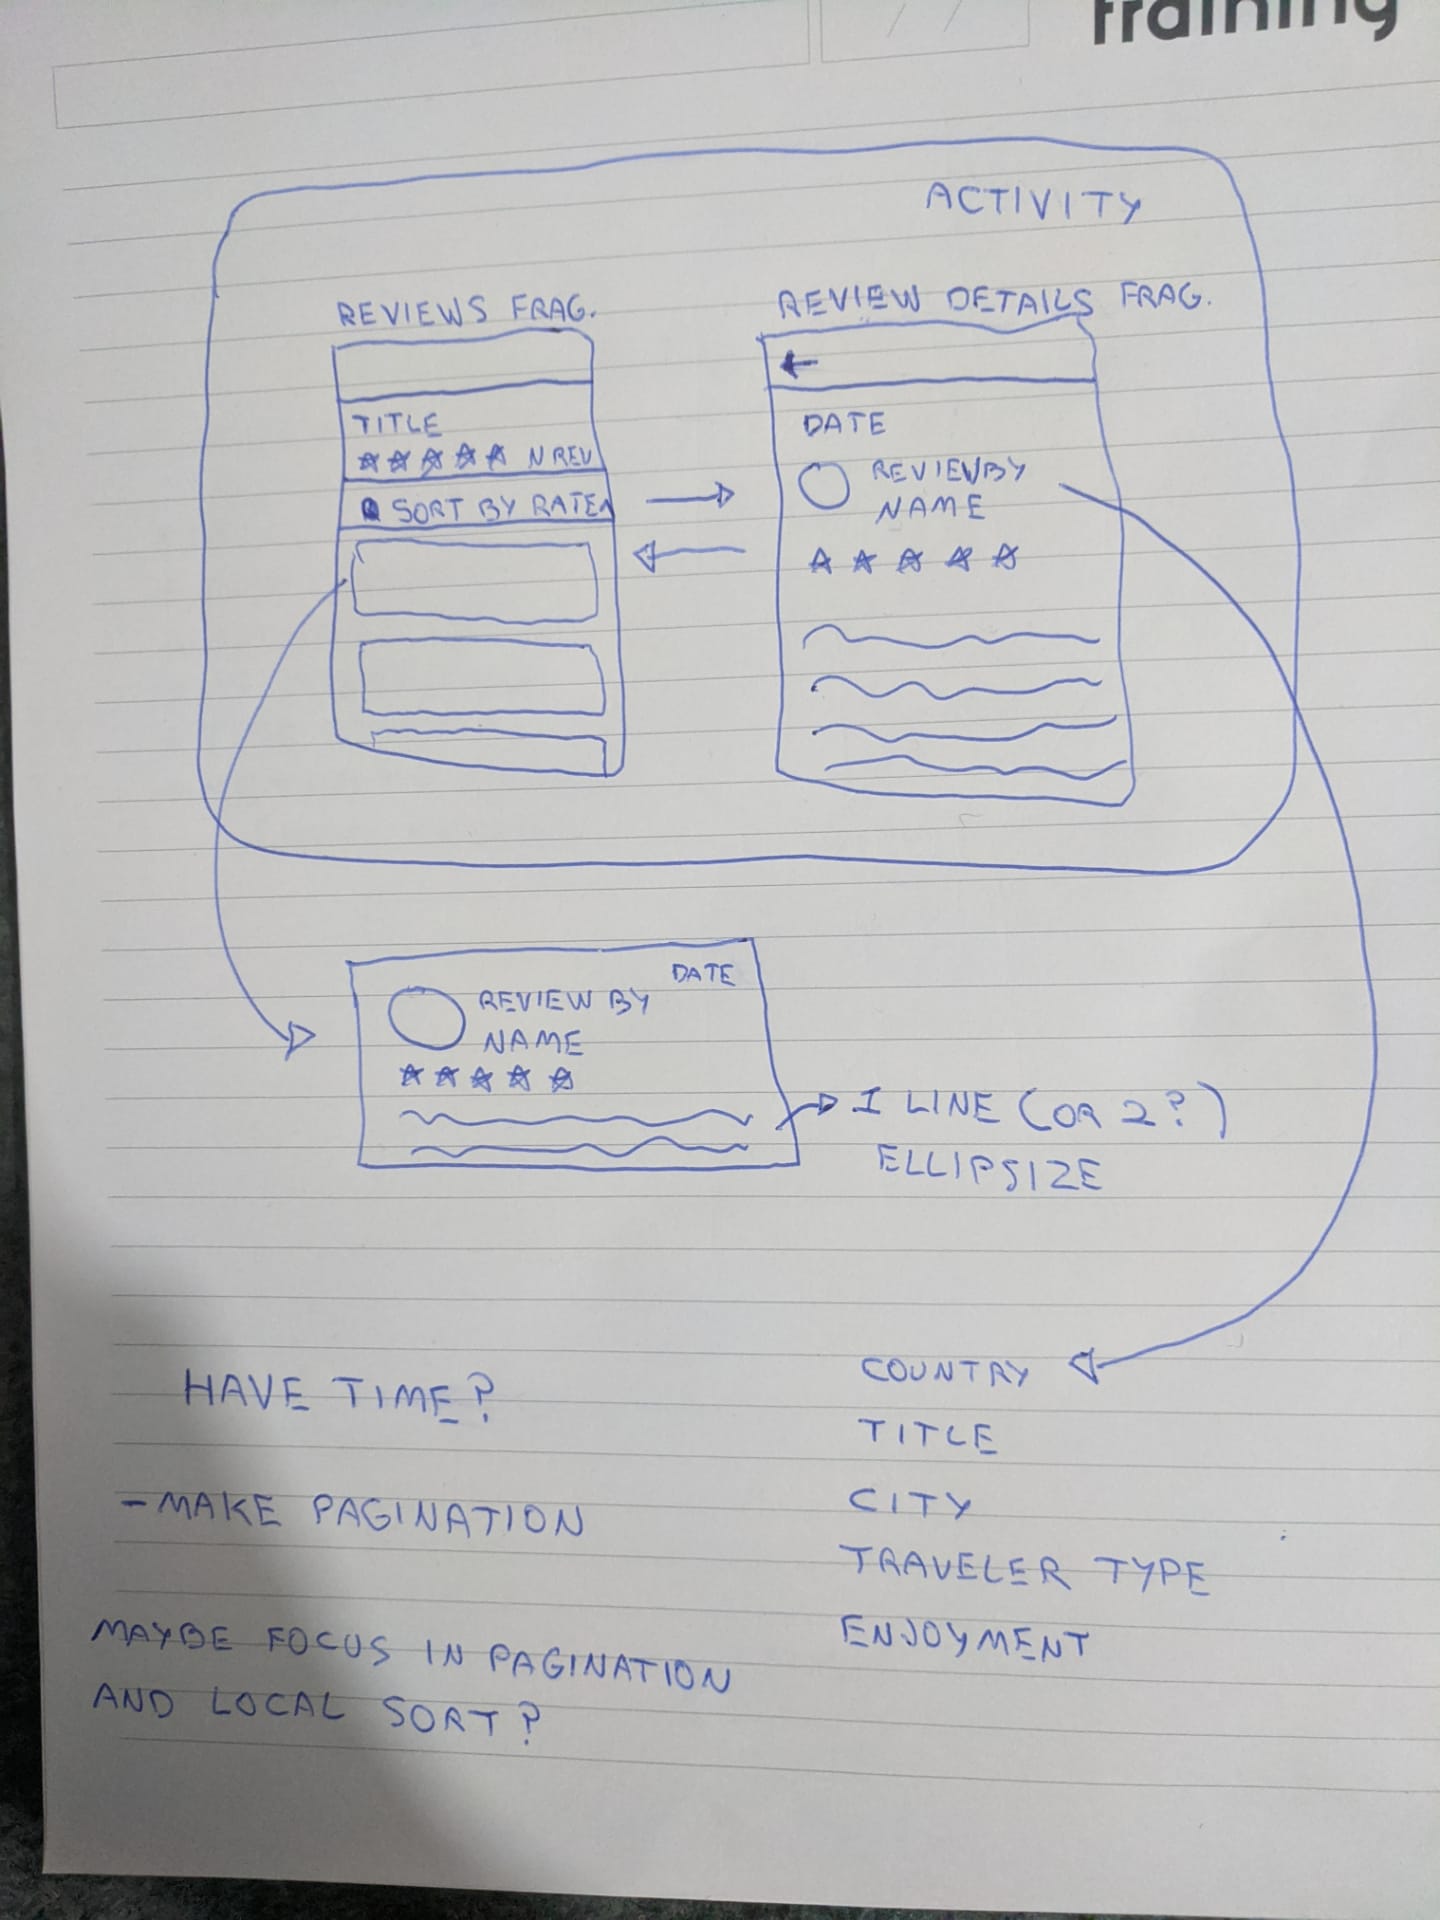 training
ACTIVITY
REVIEWS FRAG.
TITLE
N REV
SORT BY RATE
REVIEW DETAILS FRAG.
DATE
REVIEW BY
NAME
DATE
REVIEW BY
NAME
1 LINE (OR 2?)
ELLIPSIZE
HAVE TIME?
- MAKE PAGINATION
MAYBE FOCUS IN PAGINATION
AND LOCAL SORT?
COUNTRY
TITLE
CITY
TRAVELER TYPE
ENJOYMENT